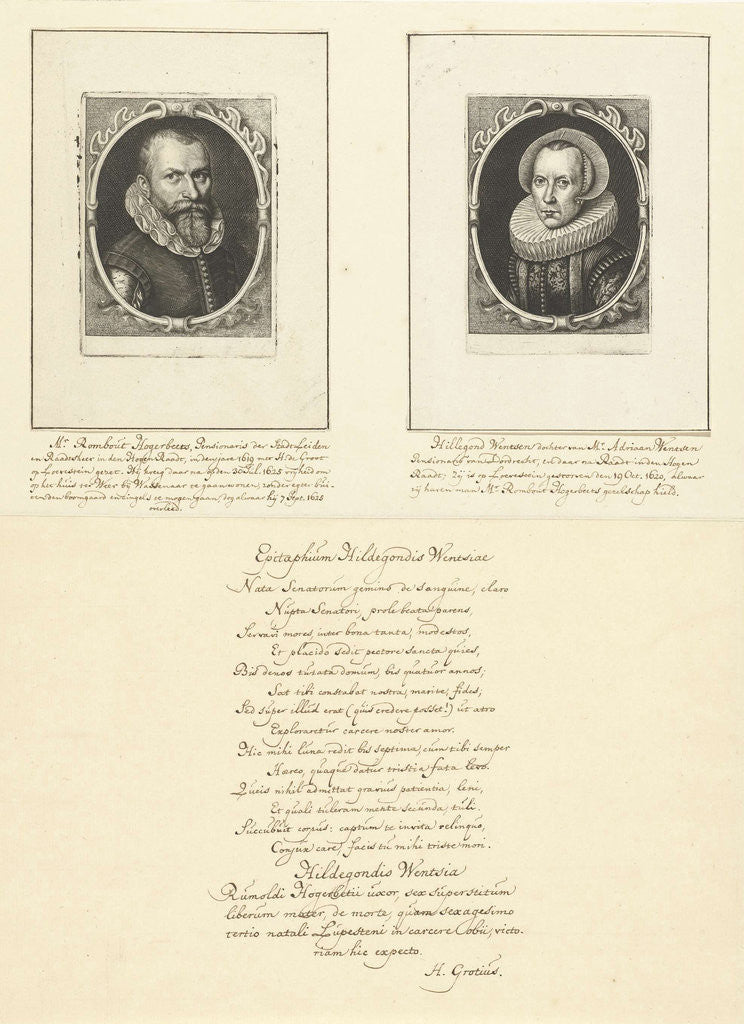 Mr. Rombout Hogerbeets, Pensionaris der Stadt Leiden
en Raadtsheer in den Hogen Raadt, in den jare 1619 met H. de Groot
op Loevestein gezet. Hij kreeg daar na op den 30 Jul. 1625 vrijheid om
op het huis ter Weer bij Wassenaar te gaan wonen, zonder egter bui-
ten den boomgaard en cingels te mogen gaan, dog alwaar hij 7 Sept. 1625
overleed.
Hillegond Wentsen dochter van Mr. Adriaan Wentsen
Pensionaris van Dordrecht, en daar na Raadt in den Hogen
Raadt; zij is op Loevestein gestorven den 19 Oct. 1620, alwaar
zij haren man Mr. Rombout Hogerbeets gezelschap hield.
Epitaphium Hildegondis Wentsiae
Nata Senatorum gemino de sanguine, claro
Nupta Senatori, prole beata parens,
Servavi mores, inter bona tanta, modestos,
Et placido sedit pectore sancta quies,
Bis denos tutata domum, bis quatuor annos;
Sat tibi constabat nostra, marite, fides;
Sed super illud erat (quis credere posset!) ut atro
Exploraretur carcere noster amor.
Hic mihi luna redit bis septima, cum tibi semper
Haereo, quaque datur tristia fata levo.
Queis nihil admittat gravius patientia, leni,
Et quali tuleram mente secunda, tuli.
Succubuit corpus: captum te invita relinquo,
Conjux care, facis tu mihi triste mori.
Hildegondis Wentsia
Rumoldi Hogerbetii uxor, sex superstitum
liberum mater, de morte, quam sexagesimo
tertio natali Lupesteni in carcere obii, victo-
riam hic expecto.
H. Grotius.